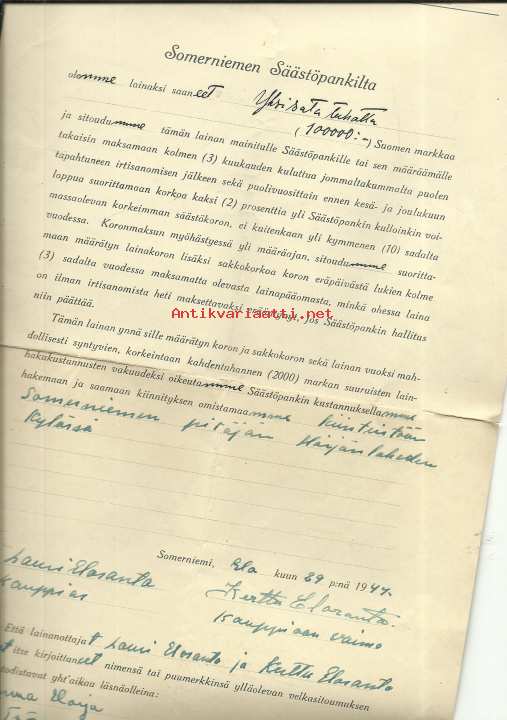 Somerniemen Säästöpankilta
olemme lainaksi saaneet Yksisata tuhatta
(100000:-) Suomen markkaa
ja sitoudumme tämän lainan mainitulle Säästöpankille tai sen määräämälle
takaisin maksamaan kolmen (3) kuukauden kuluttua jommaltakummalta puolen
tapahtuneen irtisanomisen jälkeen sekä puolivuosittain ennen kesä- ja joulukuun
loppua suorittamaan korkoa kaksi (2) prosenttia yli Säästöpankin kulloinkin voi-
massaolevan korkeimman säästökoron, ei kuitenkaan yli kymmenen (10) sadalta
vuodessa. Koronmaksun myöhästyessä yli määräajan, sitoudumme suoritta-
maan määrätyn lainakoron lisäksi sakkokorkoa koron eräpäivästä lukien kolme
(3) sadalta vuodessa maksamatta olevasta lainapääomasta, minkä ohessa laina
on ilman irtisanomista heti maksettavaksi määrätty, jos Säästöpankin hallitus
niin päättää.
Antikvariaatti.net
Tämän lainan ynnä sille määrätyn koron ja sakkokoron sekä lainan vuoksi mah-
dollisesti syntyvien, korkeintaan kahdentuhannen (2000) markan suuruisten lain-
hakukustannusten vakuudeksi oikeutamme Säästöpankin kustannuksellamme
hakemaan ja saamaan kiinnityksen omistamaamme kiinteistöön
Somerniemen pitäjän Härjänlahden
kylässä
Somerniemi, Elo kuun 29 p:nä 1944.
Lauri Elosanta Kerttu Elosanta
kauppias kauppiaan vaimo
Että lainanottajat Lauri Elosanta ja Kerttu Elosanta
itse kirjoittaneet nimensä tai puumerkkinsä ylläolevan velkasitoumuksen
todistavat yht'aikaa läsnäolleina: